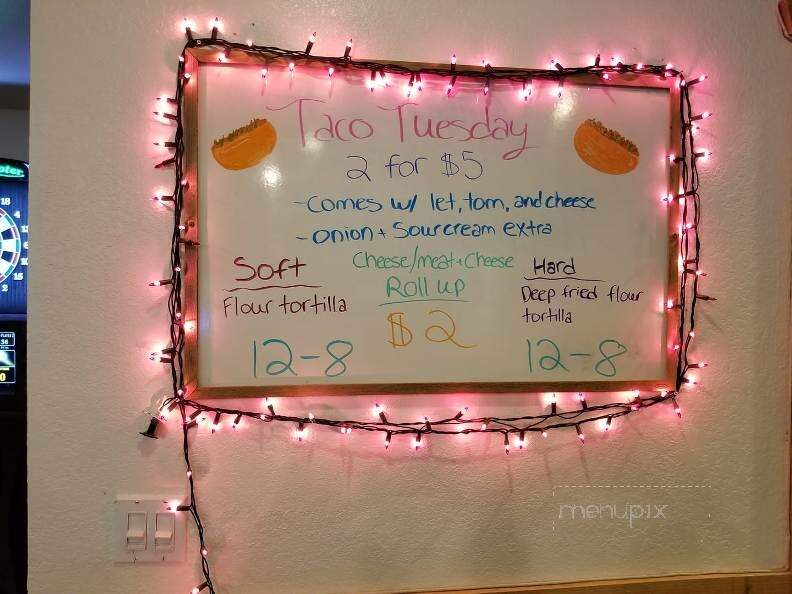 Taco Tuesday
2 for $5
-Comes w/ let, tom, and cheese
-onion + Sour cream extra
Soft
Flour tortilla
12-8
Cheese/meat+Cheese
Roll up
$2
Hard
Deep fried flour
tortilla
12-8
menupix
18
4
15
2